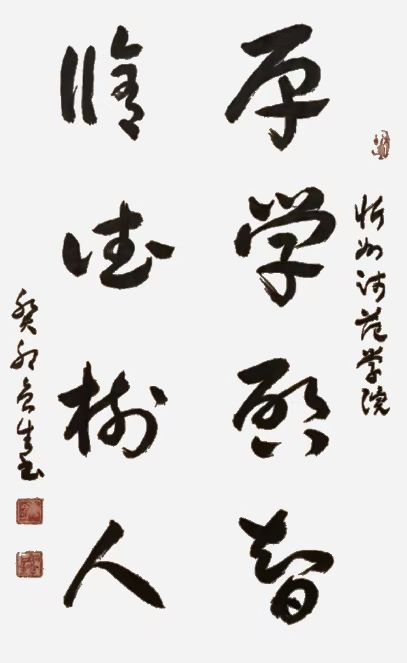 忻州师范学院
厚学启智
修德树人
癸卯 书